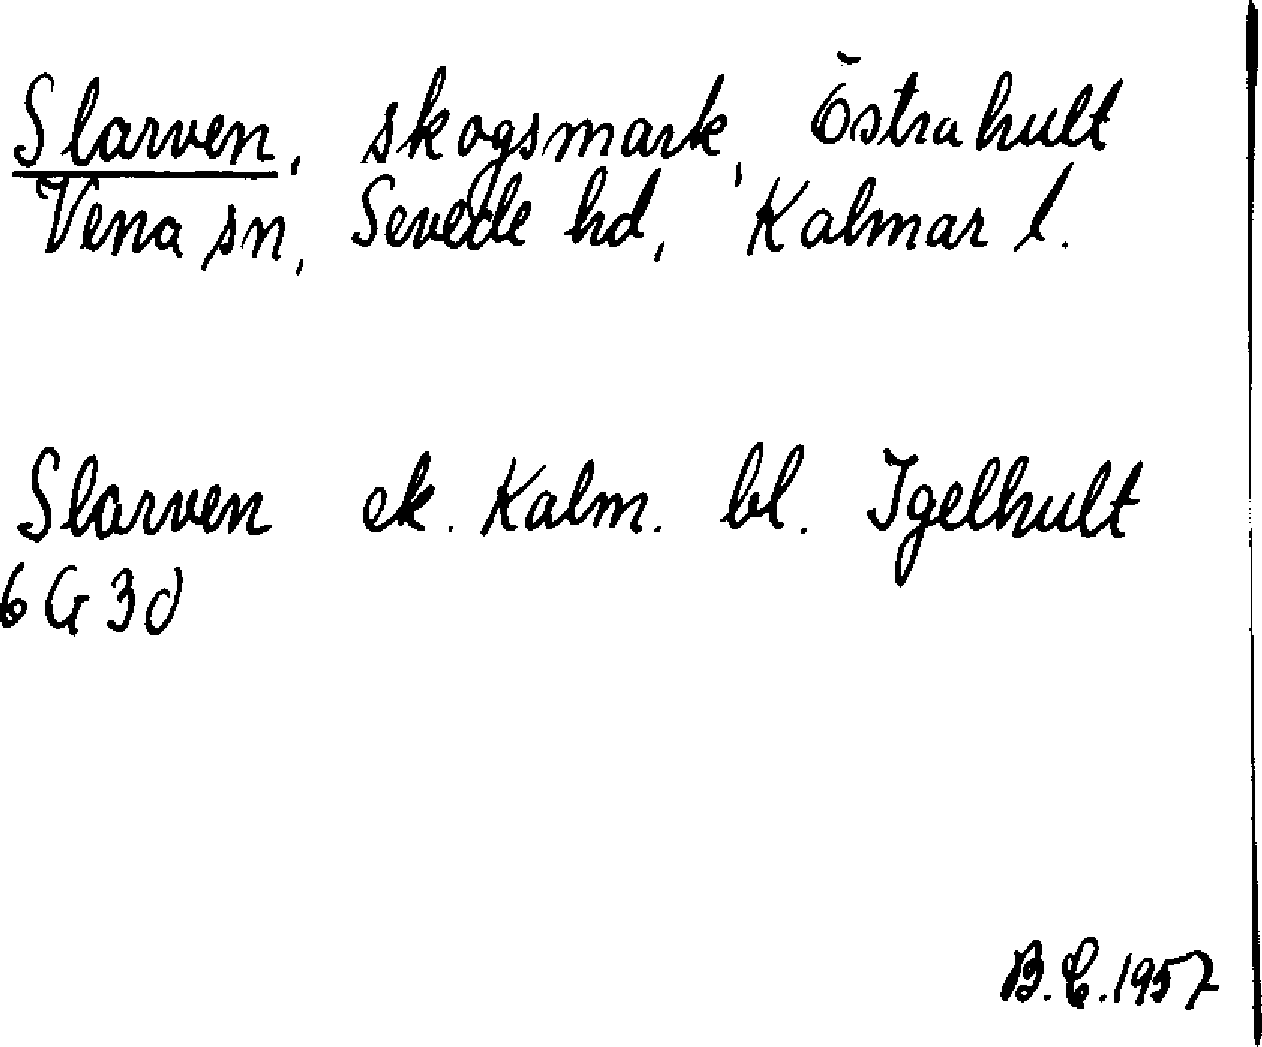 Slarven, skogsmark, Östrahult
Vena sn, Sevede hd, Kalmar l.
Slarven ek. Kalm. bl. Igelhult
6 G 3 d
B.E. 1957